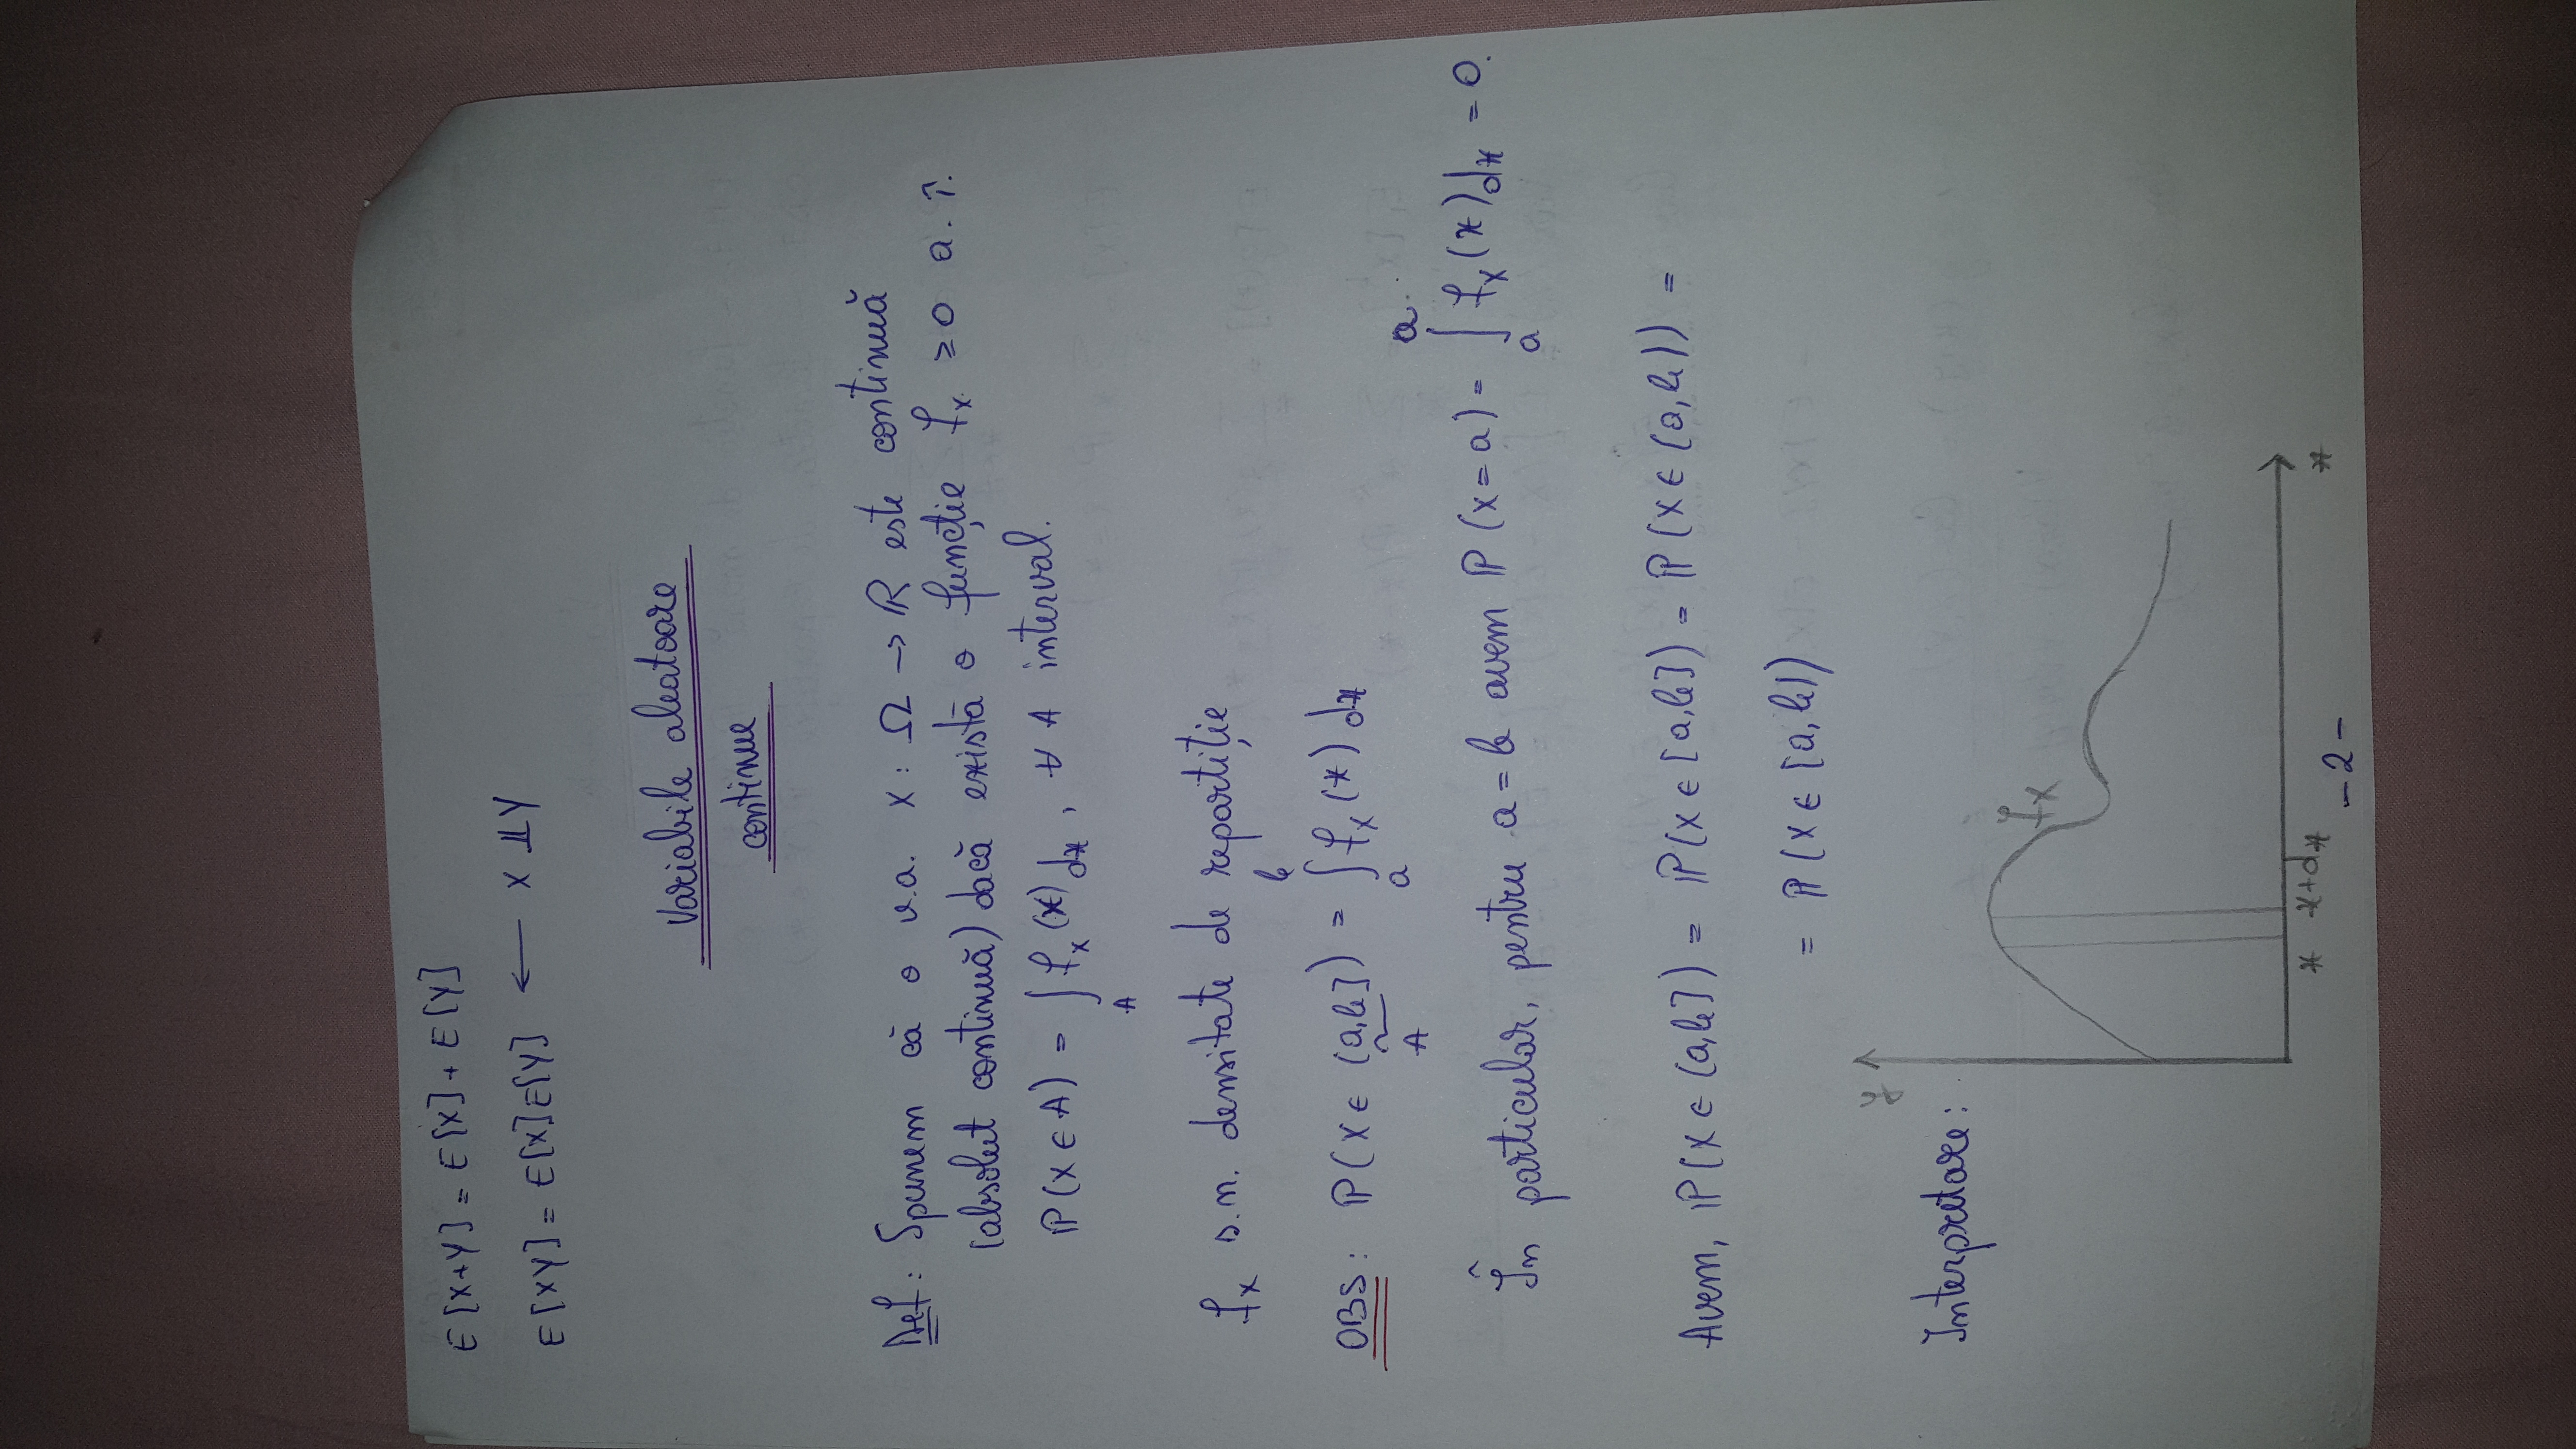 E[X+Y] = E[X] + E[Y]
E[XY] = E[X]E[Y] ← X ⫫ Y
Variabile aleatoare
continue
Def: Spunem că o v.a. X : Ω → ℝ este continuă
(absolut continuă) dacă există o funcție f_X ≥ 0 a. î.
ℙ(X ∈ A) = ∫_A f_X(x) dx, ∀ A interval.
f_X s.n. densitate de repartiție
OBS: ℙ(X ∈ (a,b]) = ∫_a^b f_X(x) dx
A
În particular, pentru a = b avem ℙ(X = a) = ∫_a^a f_X(x) dx = 0.
Avem, ℙ(X ∈ (a,b]) = ℙ(X ∈ [a,b]) = ℙ(X ∈ (a,b)) =
= ℙ(X ∈ [a,b))
y
Interpretare:
f_X
x x+dx x
-2-